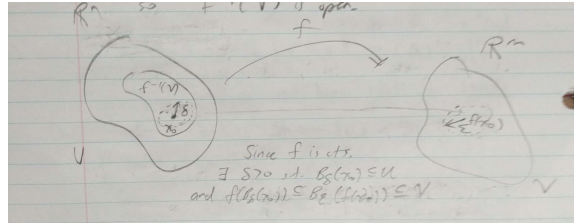 Rn so f⁻¹(V) is open
f
Rm
f⁻¹(V)
δ
x₀
f(x₀)
ε
U
V
Since f is cts.
∃ δ>0 s.t. Bδ(x₀) ⊆ U
and f(Bδ(x₀)) ⊆ Bε(f(x₀)) ⊆ V